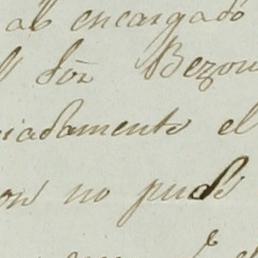 al encargado
Sõr Bezon
iadamente el
on no pude